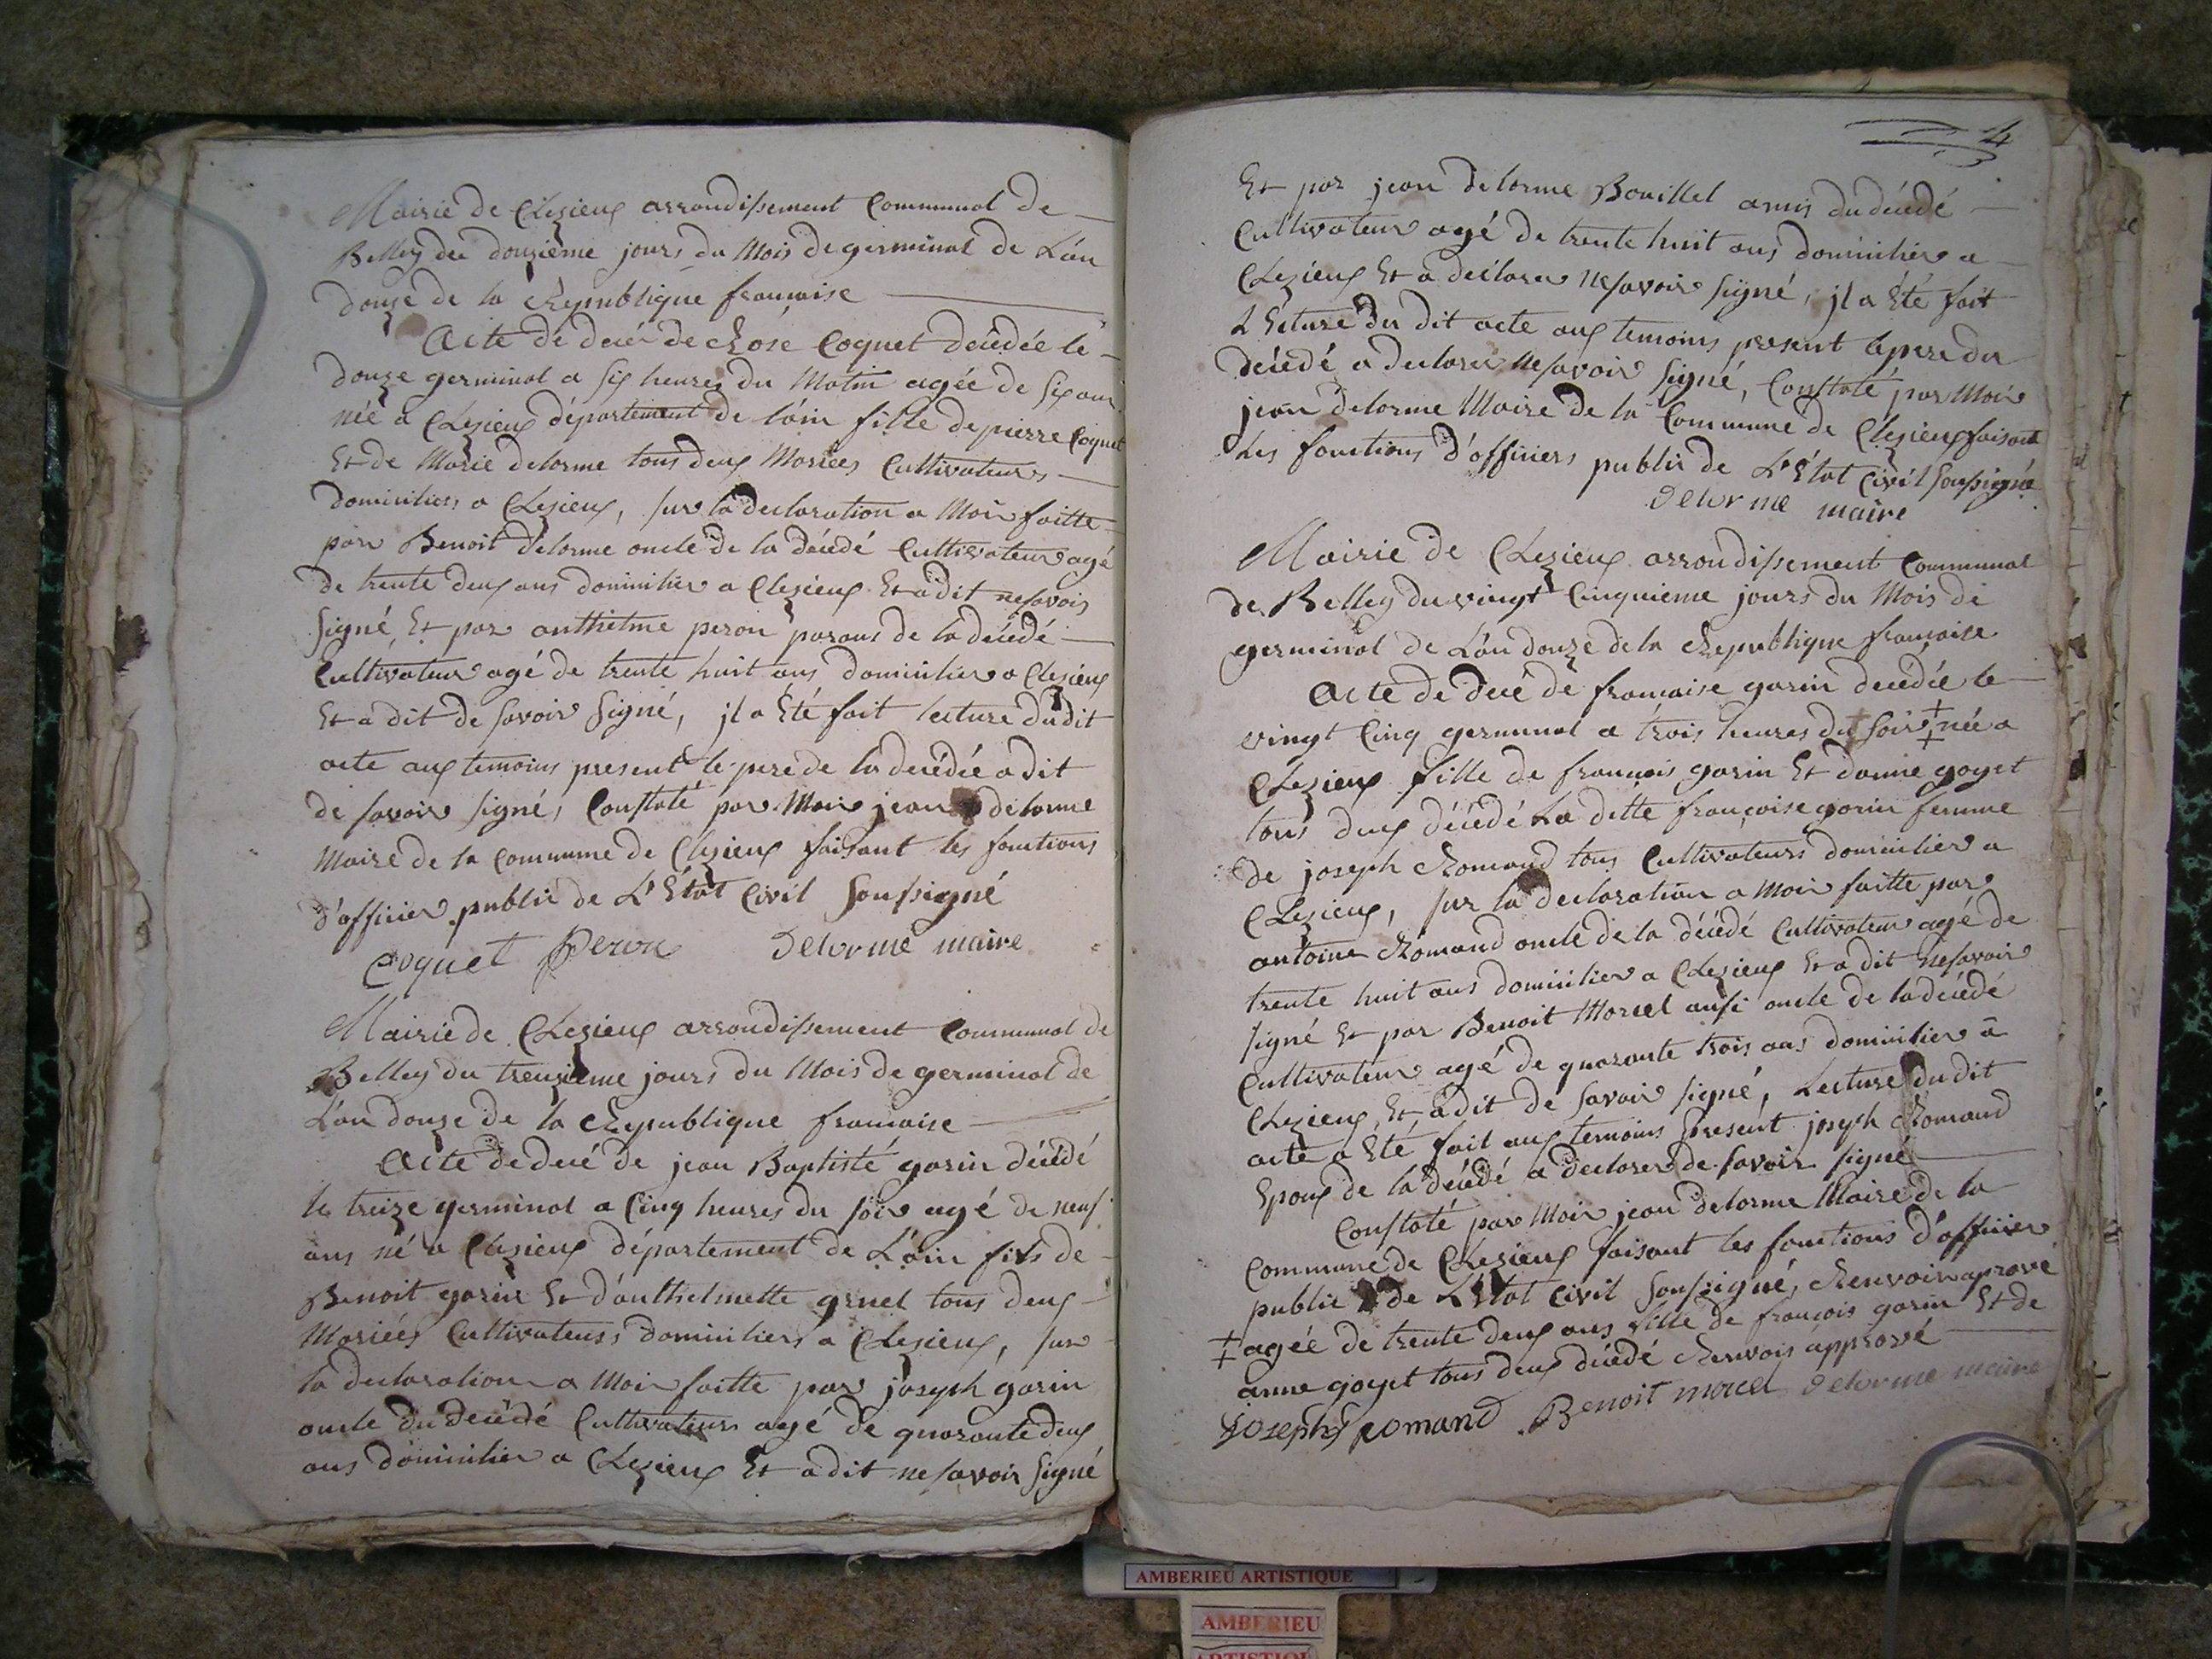 Mairie de Clezieux arrondissement Communal de
Belley du douzième jours du Mois de germinal de L'an
douze de la Republique francaise
Acte de decé de Rose Coquet décédée le
douze germinal a six heures du Matin agée de six ans
née a Clezieux département de l'ain fille de pierre Coquet
Et de Marie delorme tous deux Mariées Cultivateurs
domiciliers a Clezieux, sur la declaration a Moi faitte
par Benoit delorme oncle de la décédé Cultivateur agé
de trente deux ans domicilier a Clezieux Et a dit ne savoir
signé, Et par anthelme peron parans de la décédé
Cultivateur agé de trente huit ans domicilier a Clezieux
Et a dit de savoir signé, jl a Eté fait lecture du dit
acte aux temoins present le pere de la decédée a dit
de savoir signé, Constaté par Moi jean delorme
Maire de la commune de Clezieux faisant les fonctions
d'officier public de L'Etat Civil soussigné
Coquet peron delorme maire
Mairie de Clezieux arrondissement Communal de
Belley du treuzieme jours du Mois de germinal de
L'an douze de la Republique francaise
Acte de decé de jean Baptiste garin décédé
le treize germinal a Cinq heures du soir agé de neuf
ans né a Clezieux département de L'ain fils de
Benoit garin Et d'anthelmette gruel tous deux
Mariées Cultivateurs domiciliers a Clezieux, sur
la declaration a Moi faitte par joseph garin
oncle du decédé Cultivateur agé de quarante deux
ans domicilier a Clezieux Et a dit ne savoir signé
4
Et par jean delorme Bouillet amis du décédé
Cultivateur agé de trente huit ans domicilier a
Clezieux Et a declarer ne savoir signé, jl a Eté fait
L Ecture du dit acte aux temoins present le pere du
décédé a declarer ne savoir signé, Constaté par Moi
jean delorme Maire de la Commune de Clezieux faisant
Les fonctions d'officiers public de L'Etat Civil soussigné
delorme maire
Mairie de Clezieux arrondissement Communal
de Belley du vingt Cinquieme jours du Mois de
germinal de L'an douze de la Republique francaise
Acte de decé de francaise garin decédée le
vingt Cinq germinal a trois heures du soir ‡ née a
Clezieux fille de francois garin Et danne goyet
tous deux décédé La ditte francoise garin femme
de joseph Romand tous Cultivateurs domicilier a
Clezieux, sur la declaration a Moi faitte par
antoine Romand oncle de la décédé Cultivateur agé de
trente huit ans domicilier a Clezieux Et a dit ne savoir
signé Et par Benoit Morcel aussi oncle de la décédé
Cultivateur agé de quarante trois ans domicilier a
Clezieux, Et a dit de savoir signé, Lecture du dit
acte a Eté fait aux temoins present joseph Romand
Epoux de la décédé a declarer de savoir signé
Constaté par Moi jean delorme Maire de la
Commune de Clezieux faisant les fonctions d'officier
public de L'Etat Civil soussigné, Renvoir aprové
‡ agée de trente deux ans fille de francois garin Et de
anne goyet tous deux décédé Renvois apprové
Joseph romand Benoit morcel delorme maire
AMBERIEU ARTISTIQUE
AMBERIEU
ARTISTIQUE